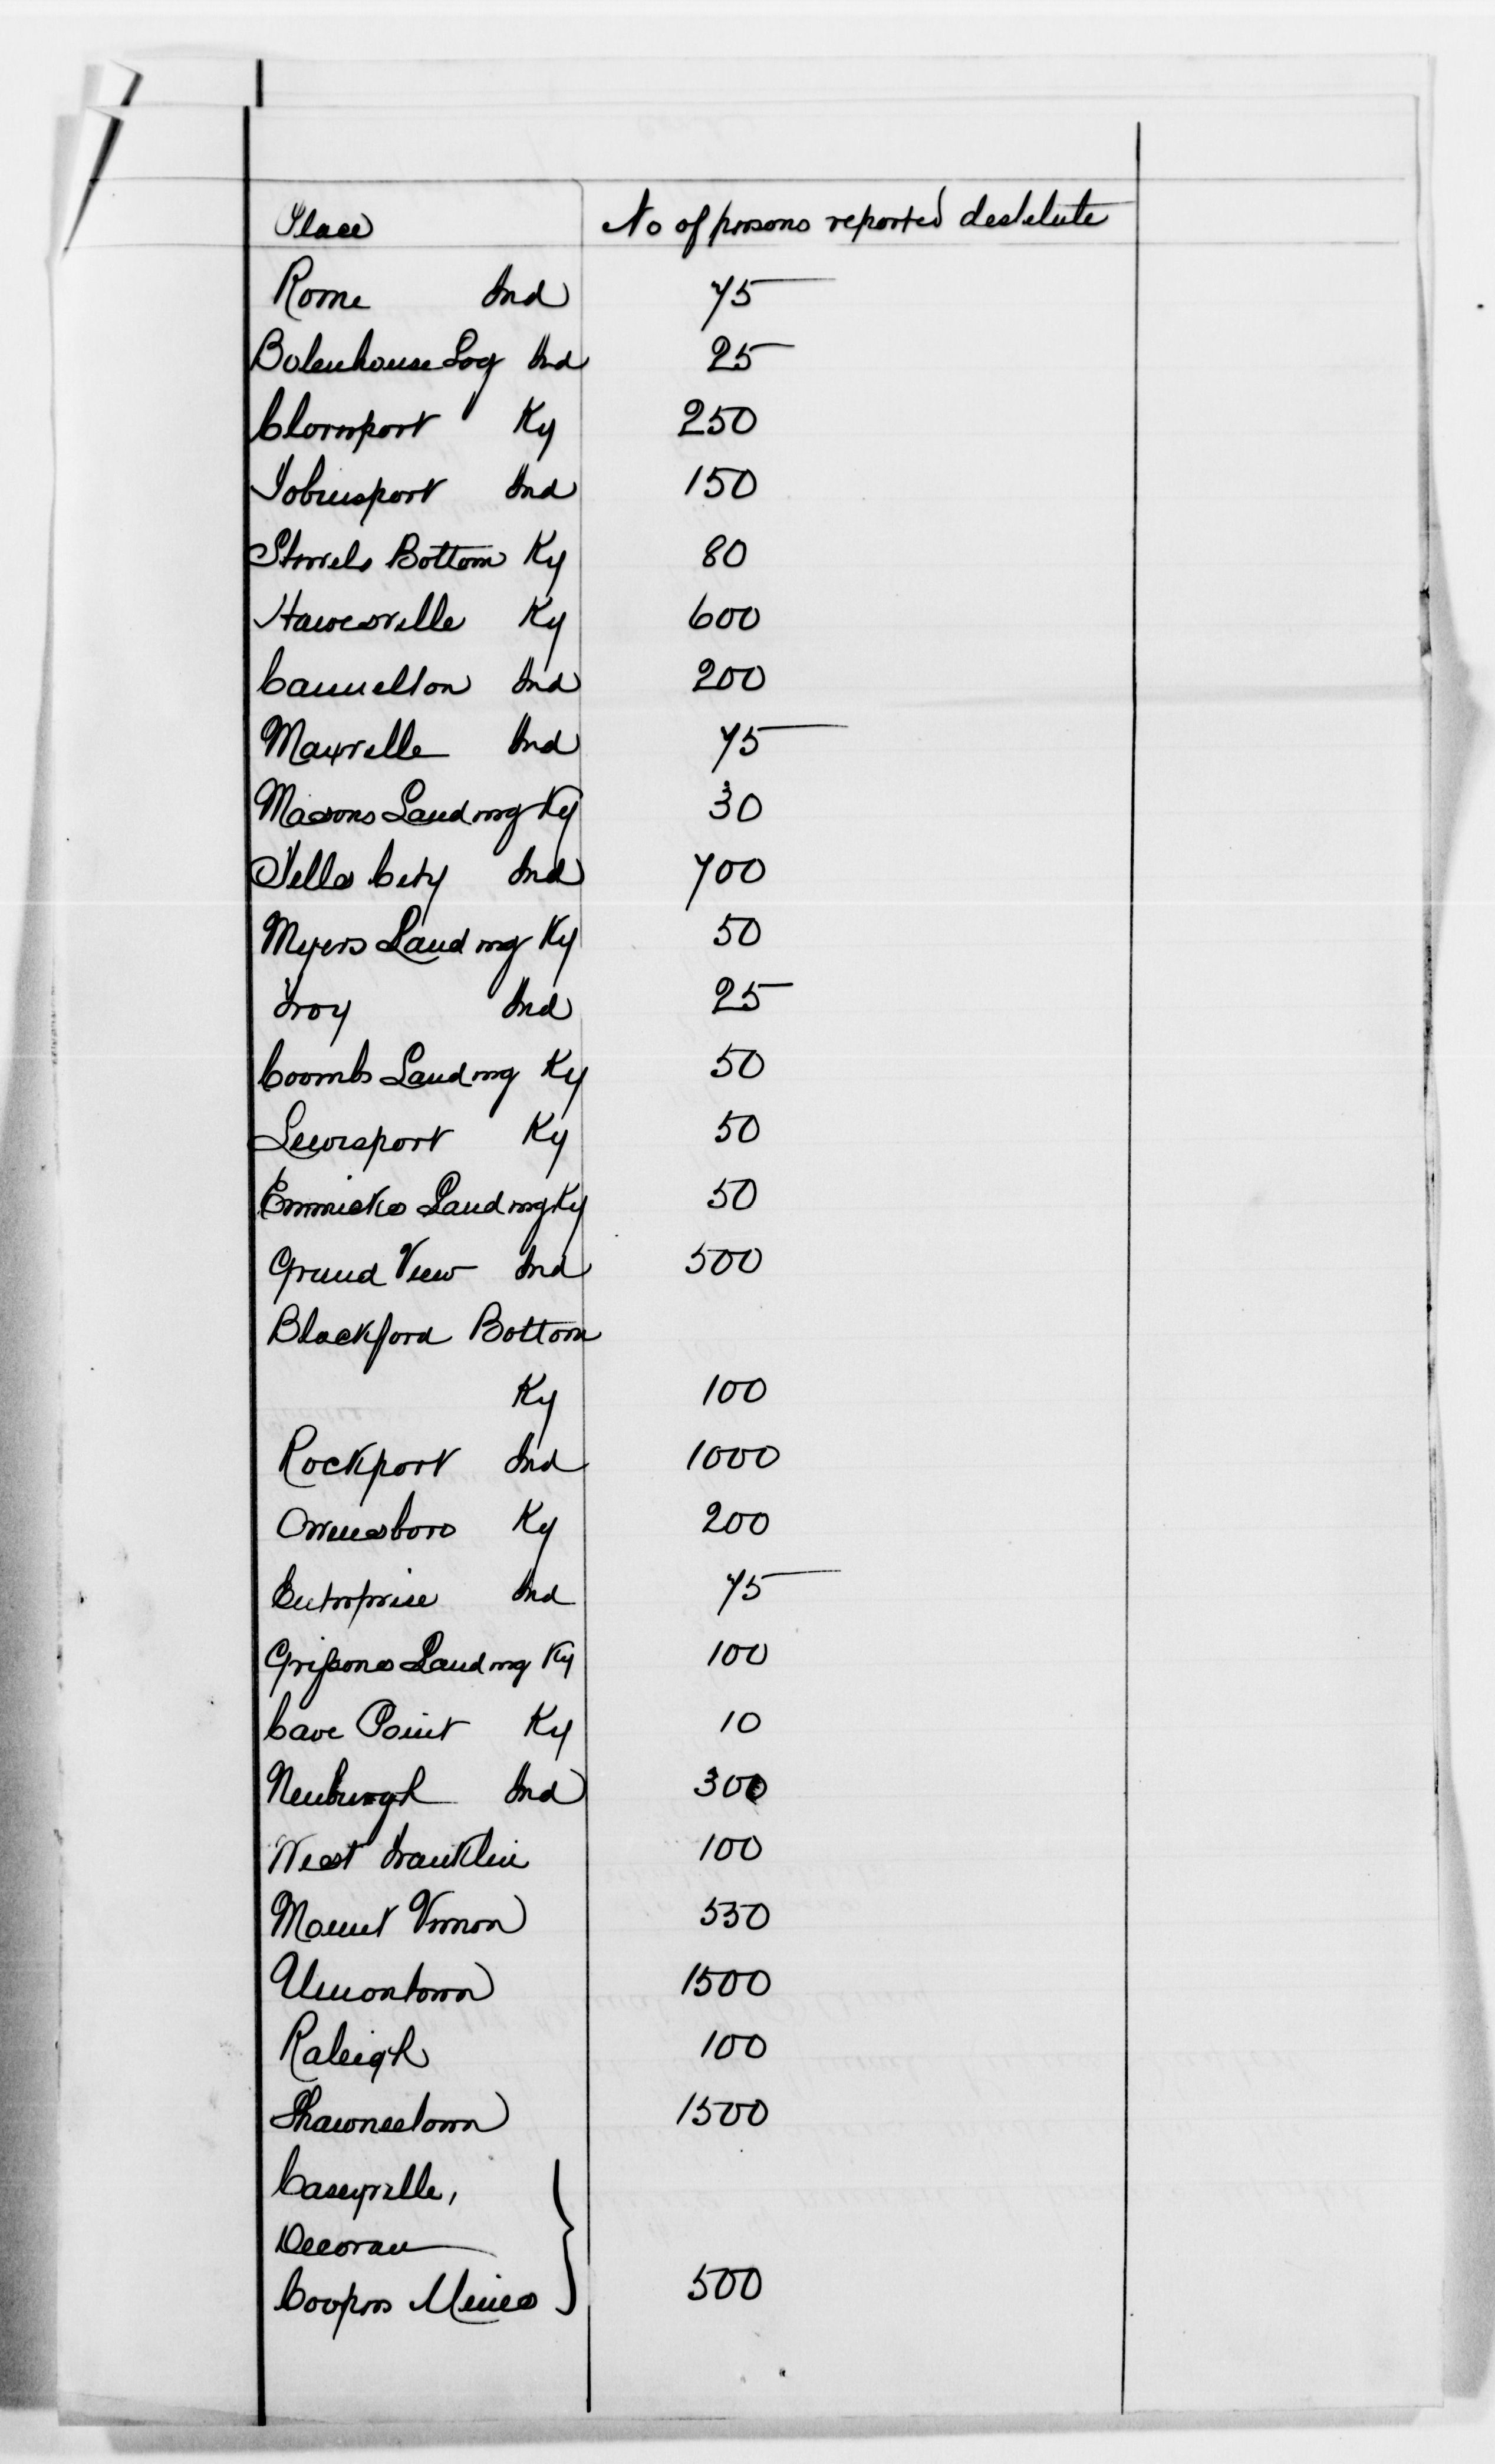 Place No of persons reported destitute
Rome Ind 75
Bolenhouse Log Ind 25
Cloverport Ky 250
Tobinsport Ind 150
Bottom Ky 80
Hawesville Ky 600
Cannelton Ind 200
Maxville Ind 75
Masons Landing Ky 30
Tells City Ind 700
Myers Landing Ky 50
Troy Ind 25
Coombs Landing Ky 50
Lewisport Ky 50
Emmicks Landing Ky 50
Grand View Ind 500
Blackford Bottom
Ky 100
Rockport Ind 1000
Owensboro Ky 200
Enterprise Ind 75
Grissons Landing Ky 100
Cave Point Ky 10
Newburgh Ind 300
West Franklin 100
Mount Vernon 550
Uniontown 1500
Raleigh 100
Shawneetown 1500
Caseyville,
Decoran
Coopers Mines 500